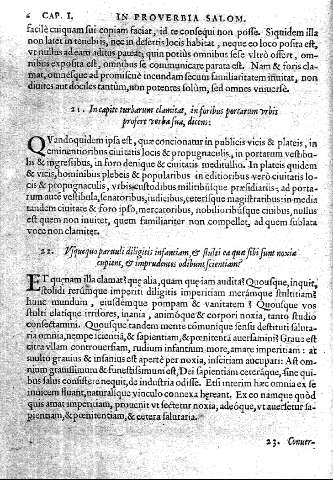 6 CAP. I. IN PROVERBIA SALOM.
facilè cuiquam sui copiam faciat, id te consequi non posse. Siquidem illa
non latet in tenebris, nec in desertis locis habitat, neque eo loco posita est,
ve nullus ad eam aditus pateat: quin potiùs omnibus sese vltrò offert, om-
nibus exposita est, omnibus se communicare parata est. Nam & foris cla-
mat, omnesque ad promiscuè incundam secum familiaritatem inuitat, non
diuites aut doctos tantùm, non potentes solùm, sed omnes vniuerse.
21. In capite turbarum clamitat, in foribus portarum vrbis
profert verba sua, dicens:
QVandoquidem ipsa est, quæ concionatur in publicis vicis & plateis, in
eminentioribus ciuitatis locis & propugnaculis, in portarum vestibu-
lis & ingressibus, in foro denique & ciuitatis meditullio. In plateis quidem
& vicis, hominibus plebeis & popularibus: in editioribus verò ciuitatis lo-
cis & propugnaculis, vrbis custodibus militibúsque præsidiariis: ad porta-
rum autē vestibula, senatoribus, iudicibus, ceterísque magistratibus: in media
tandem ciuitate & foro ipso, mercatoribus, nobilioribúsque ciuibus, nullus
est quem non inuitet, quem familiariter non compellet, ad quem sublata
voce non clamitet.
22. Vsquequo paruuli diligitis infantiam, & stulti ea quæ sibi sunt noxia
cupient, & imprudentes odibunt scientiam?
ET quænam illa clamat? quæ alia, quam quę iam audita? Quousque, inquit,
stolidi rerúmque imperiti diligitis imperitiam merámque stultitiam?
hunc mundum, eiusdémque pompam & vanitatem? Quousque vos
stulti elatique irrisores, inania, animóque & corpori noxia, tanto studio
consectamini. Quousque tandem mente communíque sensu destituti saluta-
ria omnia, nempe scientiā, & sapientiam, & pœnitentiā auersamini? Graue est
citra vllam controuersiam, rudium infantum more, amare imperitiam: at
multò grauius & insanius est apertè per noxia, insciriam aucupari: Ast om-
nium grauissimum & funestissimum est, Dei sapientiam ceteráque, sine qui-
bus salus consistere nequit, de industria odisse. Etsi interim hæc omnia ex se
inuicem fluant, naturalíque vinculo connexa hæreant. Ex eo namque quòd
quis amat imperitiam, prouenit vt sectetur noxia, adeóque, vt auersetur sa-
pientiam, & pœnitentiam, & cetera salutaria.
23. Conuer-